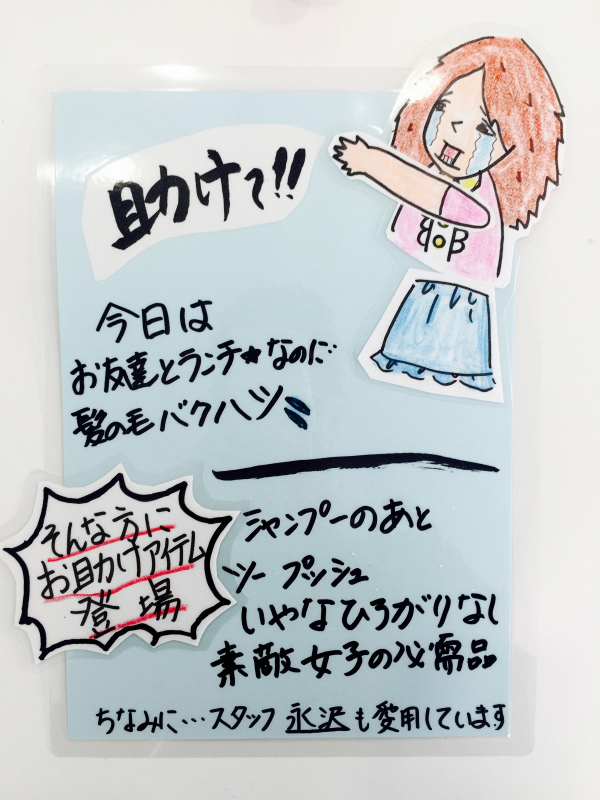 助けて!!
BOB
今日は
お友達とランチ★なのに
髪の毛バクハツ
そんな方に
お助けアイテム
登場
シャンプーのあと
ツープッシュ
いやなひろがりなし
素敵女子の必需品
ちなみに…スタッフ永沢も愛用しています